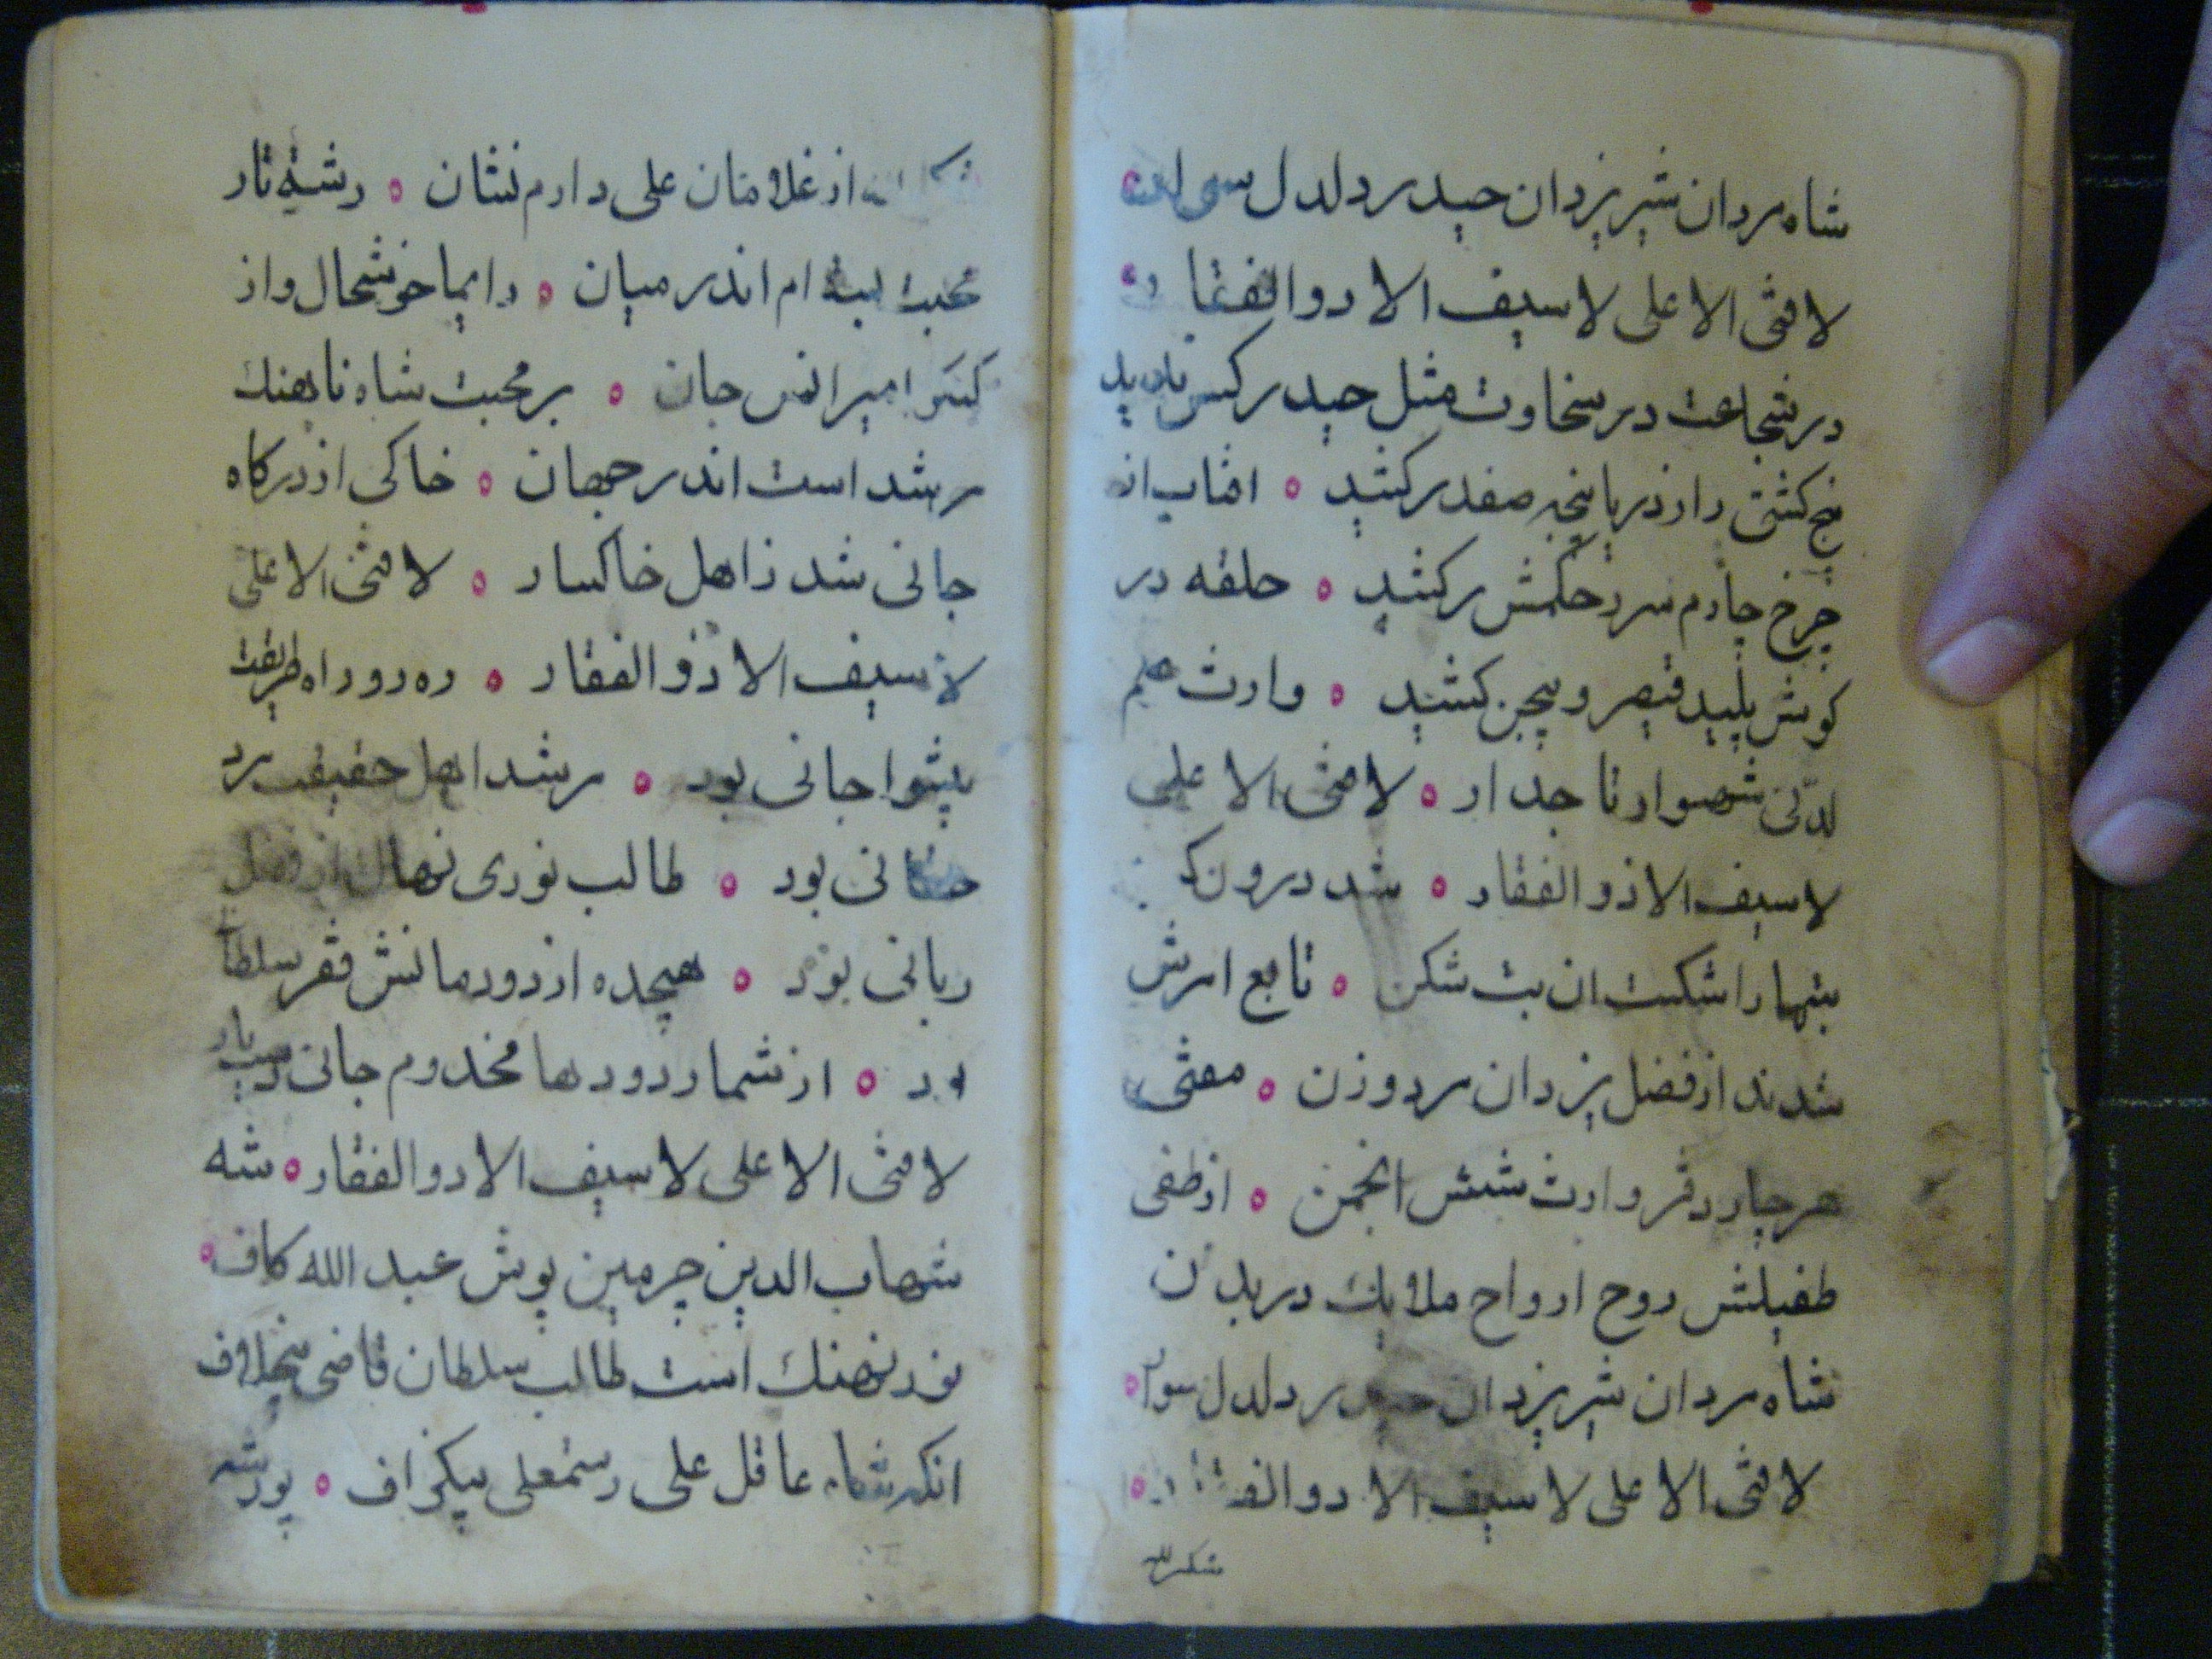 شاه مردان شیر یزدان حیدر دلدل سوار
لا فتی الا علی لا سیف الا دوالفقار
در شجاعت در سخاوت مثل حیدر کس ندید
کشتی را ز دریا پنجه صفدر کشید ه افتاب از
چرخ چارم سر ز حکمش برکشید ه حلقه در
کوش پلید قیصر و کشید ه وارث علم
لدنّی شهسوار تاجدار ه لا فتی الا علی
لا سیف الا ذوالفقار ه شد درون
بتها را شکست ان بت شکن ه تابع امرش
شدند از فضل یزدان مرد وزن ه مفتی
هر چار دفتر وارث شش انجمن ه از طفی
طفیلش روح ارواح ملایك در بدن
شاه مردان شیر یزدان حیدر دلدل سوار ه
لا فتی الا علی لا سیف الا دوالفقار ه
شکرلله
از غلامان علی دارم نشان ه رشته تار
محبت بسته ام اندر میان ه دایما خوشحال و از
امیر انس جان ه بر محبت شاه نا نهنك
مرشد است اندر جهان ه خاکی از درکاه
جانی شد ز اهل خاکسار ه لا فتی الا علی
لا سیف الا ذوالفقار ه ره رو راه طریقت
پیشوا جانی بود ه مرشد اهل حقیقت مرد
حقانی بود ه طالب نوری نهال از فضل
ربانی بود ه هیجده از دودمانش فقر سلطان
بود ه از شمار دودها مخدوم جانی
لا فتی الا علی لا سیف الا دوالفقار ه شه
شهاب الدین چرمین پوش عبد الله کاف ه
نور نهنك است طالب سلطان قاضی بیخلاف
انکه شاه عاقل علی رستمعلی بیکزاف ه